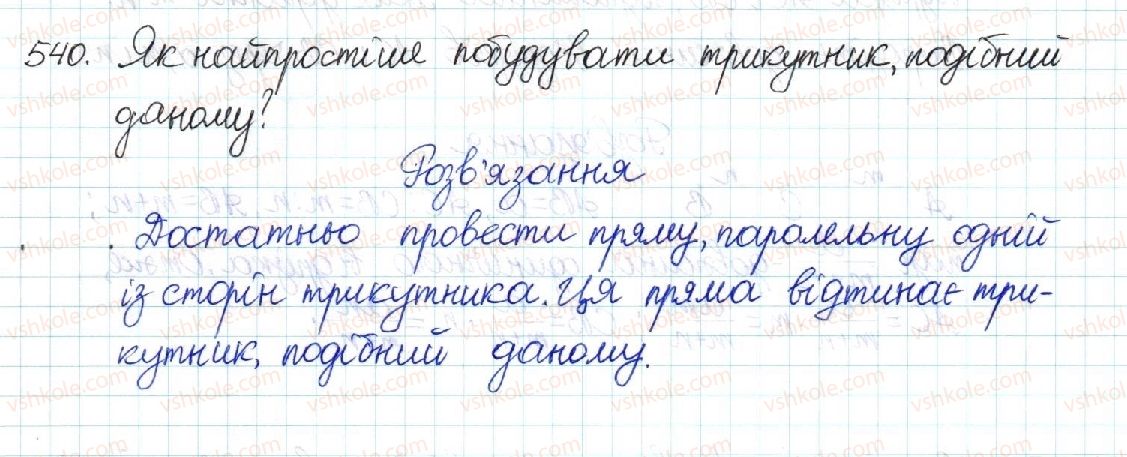 540. Як найпростіше побудувати трикутник, подібний
даному?
Розв'язання
Достатньо провести пряму, паралельну одній
із сторін трикутника. Ця пряма відтинає три-
кутник, подібний даному.